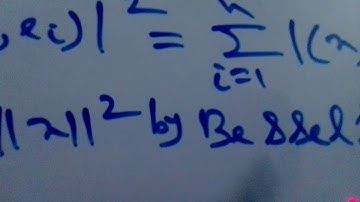 , ei)|² = Σ_{i=1}^{n} |(x,
||x||² by Bessel